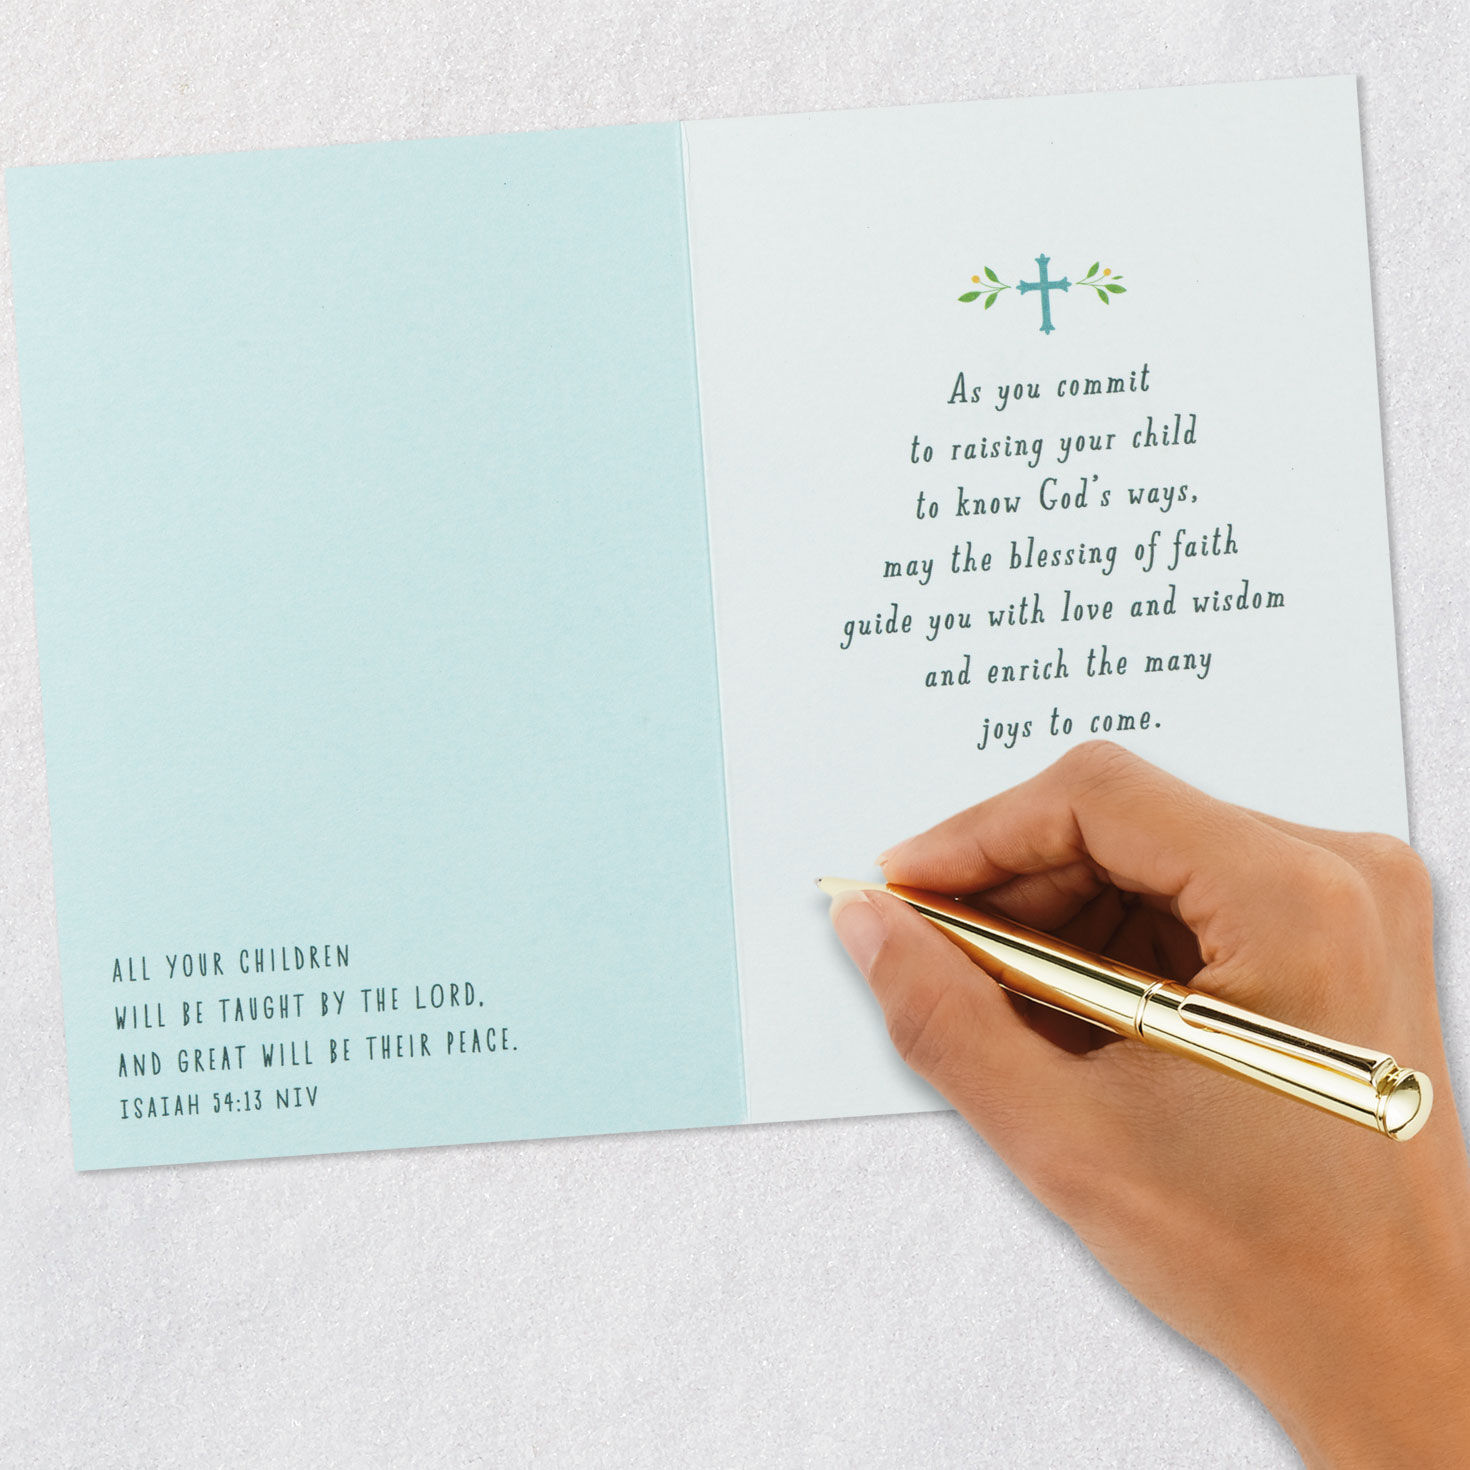 ALL YOUR CHILDREN
WILL BE TAUGHT BY THE LORD,
AND GREAT WILL BE THEIR PEACE.
ISAIAH 54:13 NIV
As you commit
to raising your child
to know God's ways,
may the blessing of faith
guide you with love and wisdom
and enrich the many
joys to come.